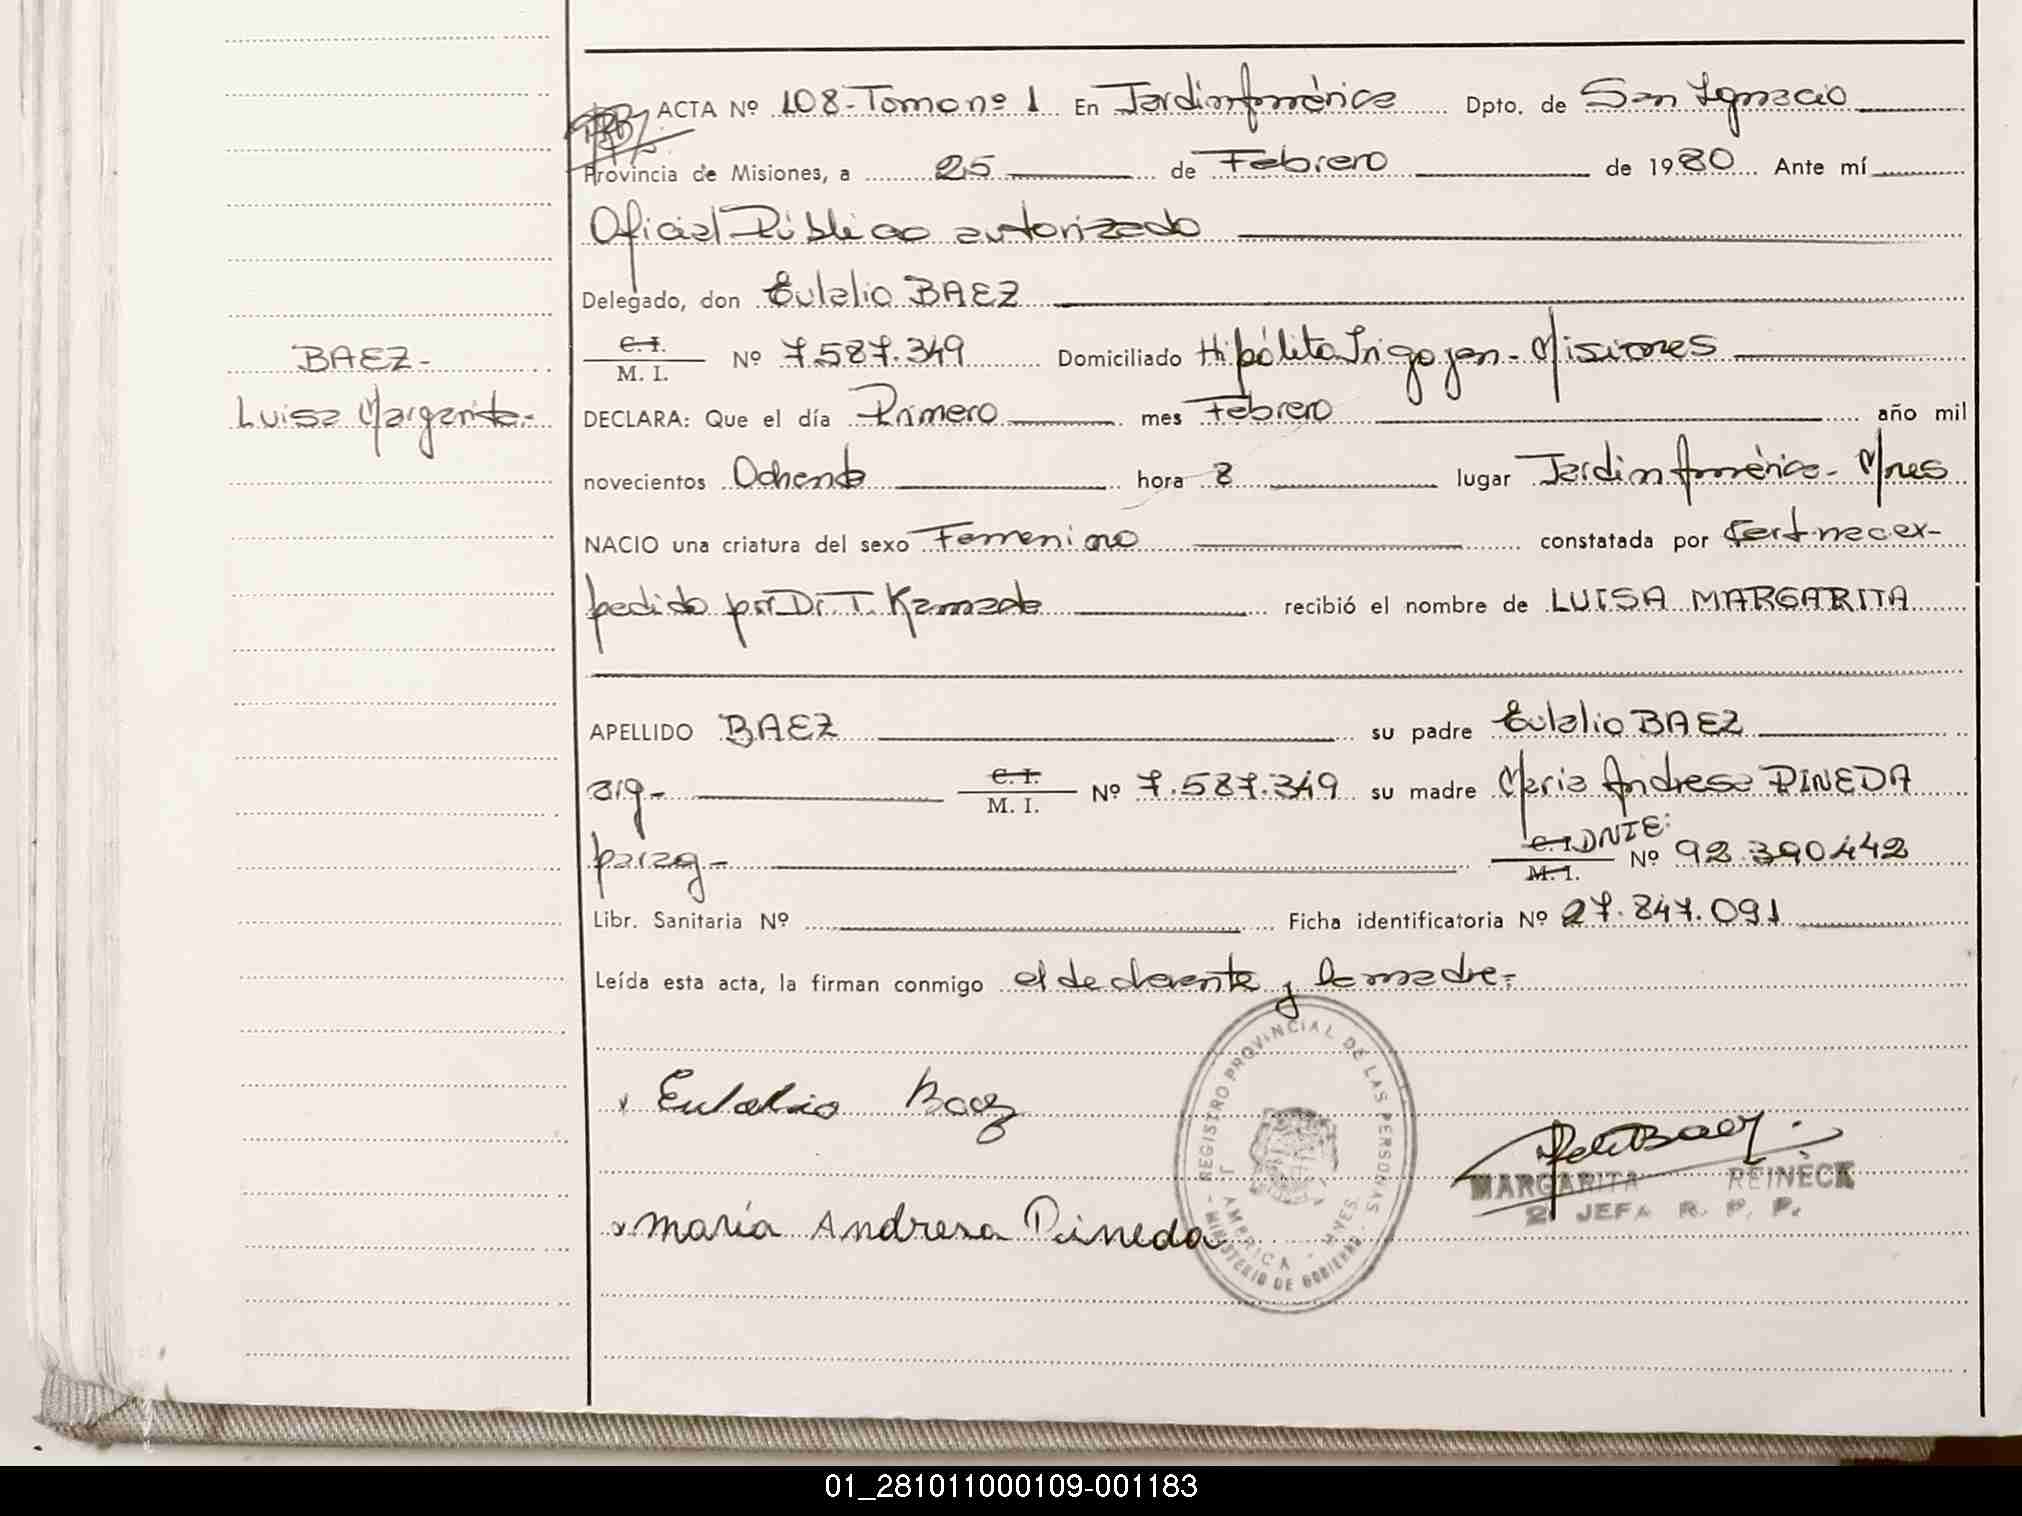 ACTA Nº 108-Tomo nº 1 En Jardin América Dpto. de San Ignacio
Provincia de Misiones, a 25 de Febrero de 1980 Ante mí
Oficial Público autorizado
Delegado, don Eulalio BAEZ
C. I.
M. I. Nº 7.587.349 Domiciliado Hipólito Irigoyen - Misiones
BAEZ-
Luisa Margarita.-
DECLARA: Que el día Primero mes Febrero año mil
novecientos Ochenta hora 8 lugar Jardin América - Mnes
NACIO una criatura del sexo Femenino constatada por Cert nac ex-
pedido por Dr. T. Kamada recibió el nombre de LUISA MARGARITA
APELLIDO BAEZ su padre Eulalio BAEZ
arg- C. I. M. I. Nº 7.587.349 su madre Maria Andresa PINEDA
parag- C. I. DNIE: M. I. Nº 92.390442
Libr. Sanitaria Nº Ficha identificatoria Nº 27.847.091
Leída esta acta, la firman conmigo el declarante y la madre.-
Eulalio Baez
María Andresa Pineda
REGISTRO PROVINCIAL DE LAS PERSONAS
MINISTERIO DE GOBIERNO
J. AMERICA - MNES.
MARGARITA REINECK
2º JEFA R. P. P.
01_281011000109-001183